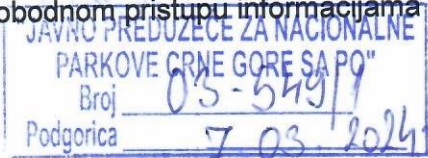 obodnom pristupu informacijama
JAVNO PREDUZEĆE ZA NACIONALNE
PARKOVE CRNE GORE SA PO"
Broj 03-549/1
Podgorica 7 03. 2024